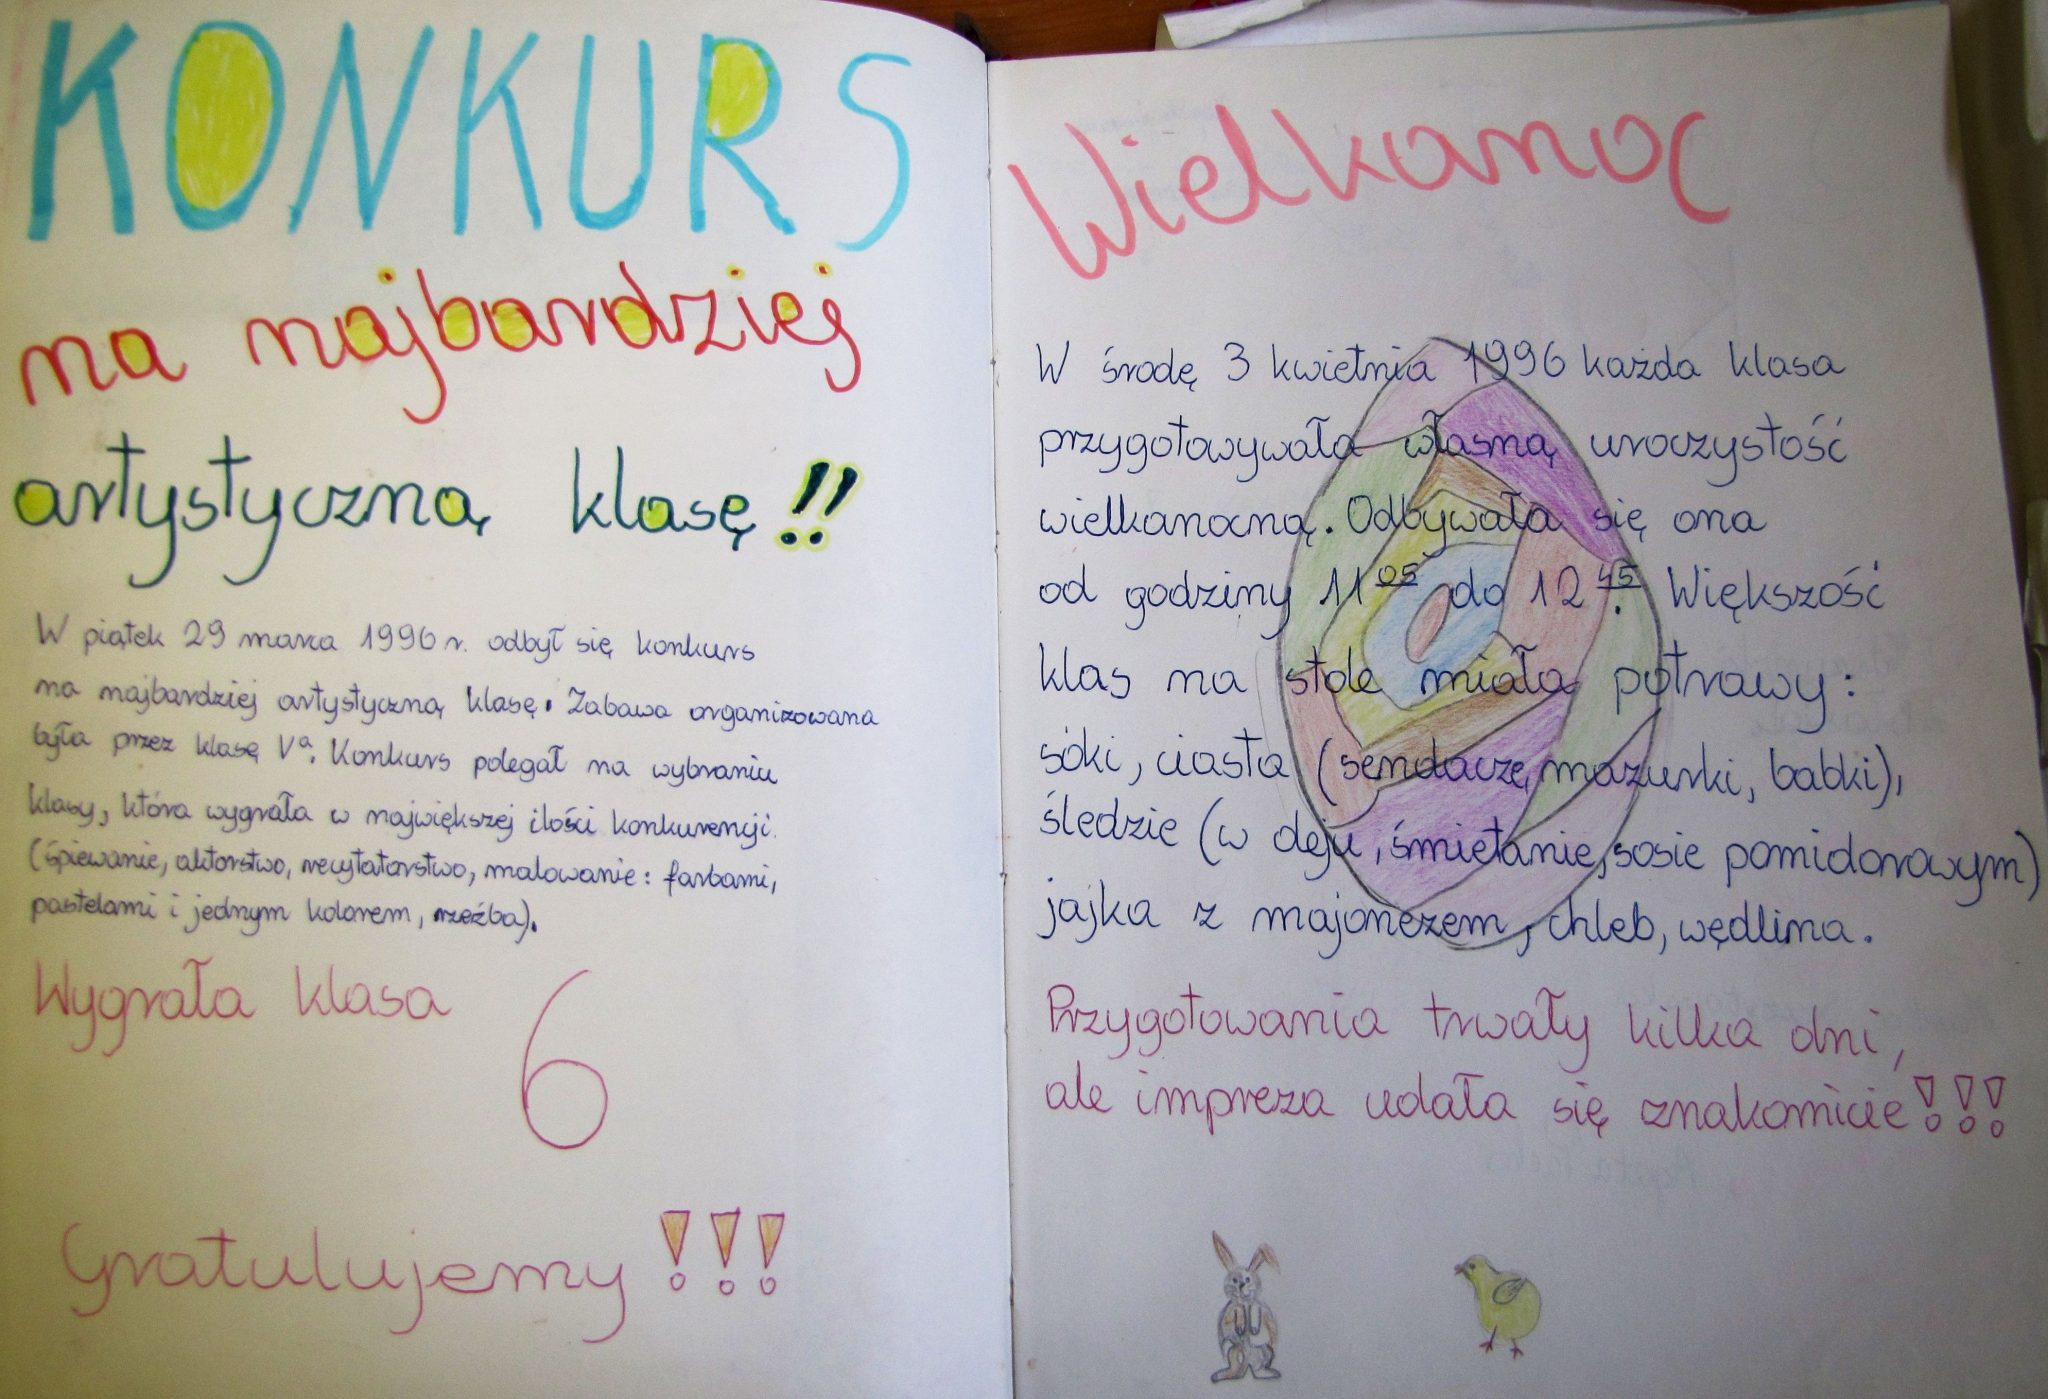 KONKURS
na najbardziej
artystyczną klasę!!
W piątek 29 marca 1996 r. odbył się konkurs
na najbardziej artystyczną klasę. Zabawa organizowana
była przez klasę Va. Konkurs polegał na wybraniu
klasy, która wygrała w największej ilości konkurencji.
(śpiewanie, aktorstwo, recytatorstwo, malowanie: farbami,
pastelami i jednym kolorem, rzeźba).
Wygrała klasa
6
Gratulujemy!!!
Wielkanoc
W środę 3 kwietnia 1996 każda klasa
przygotowywała własną uroczystość
wielkanocną. Odbywała się ona
od godziny 11 05 do 12 45. Większość
klas na stole miała potrawy:
sóki, ciasta (sendacze, mazurki, babki),
śledzie (w oleju, śmietanie, sosie pomidorowym)
jajka z majonezem, chleb, wędlina.
Przygotowania trwały kilka dni,
ale impreza udała się znakomicie!!!